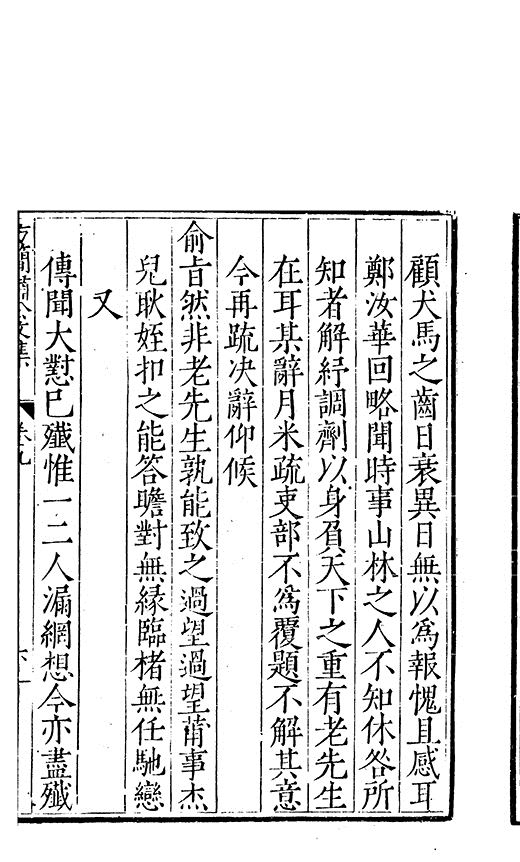 顧犬馬之齒日衰異日無以爲報愧且感耳
鄭汝華回略聞時事山林之人不知休咎所
知者解紓調劑以身負天下之重有老先生
在耳某辭月米疏吏部不爲覆題不解其意
今再疏决辭仰候
俞旨然非老先生孰能致之過望過望莆事杰
兒耿姪扣之能答瞻對無緣臨楮無任馳戀
又
傳聞大憝已殱惟一二人漏網想今亦盡殱
簡肅公文集
卷九